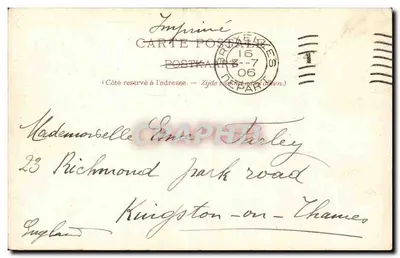 Imprimé
CARTE POSTALE
POSTKAART
(Côté réservé à l'adresse. - Zijde
BRUXELLES
16
6-7
06
DEPART
1
Mademoiselle Farley
23 Richmond park road
Kingston-on-Thames
England